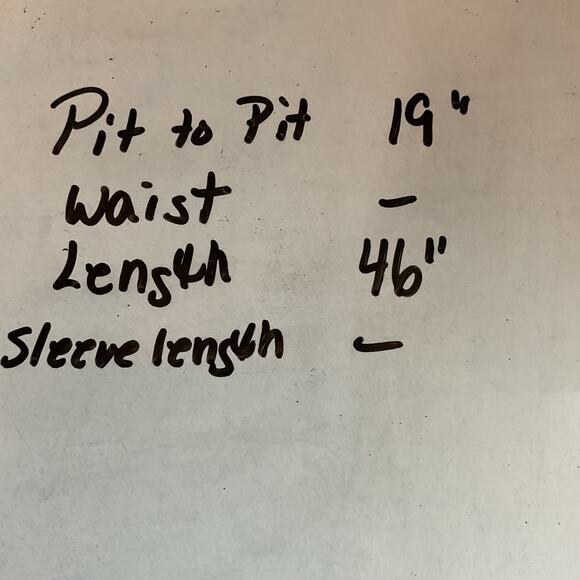 Pit to Pit 19"
Waist -
Length 46"
Sleeve length -